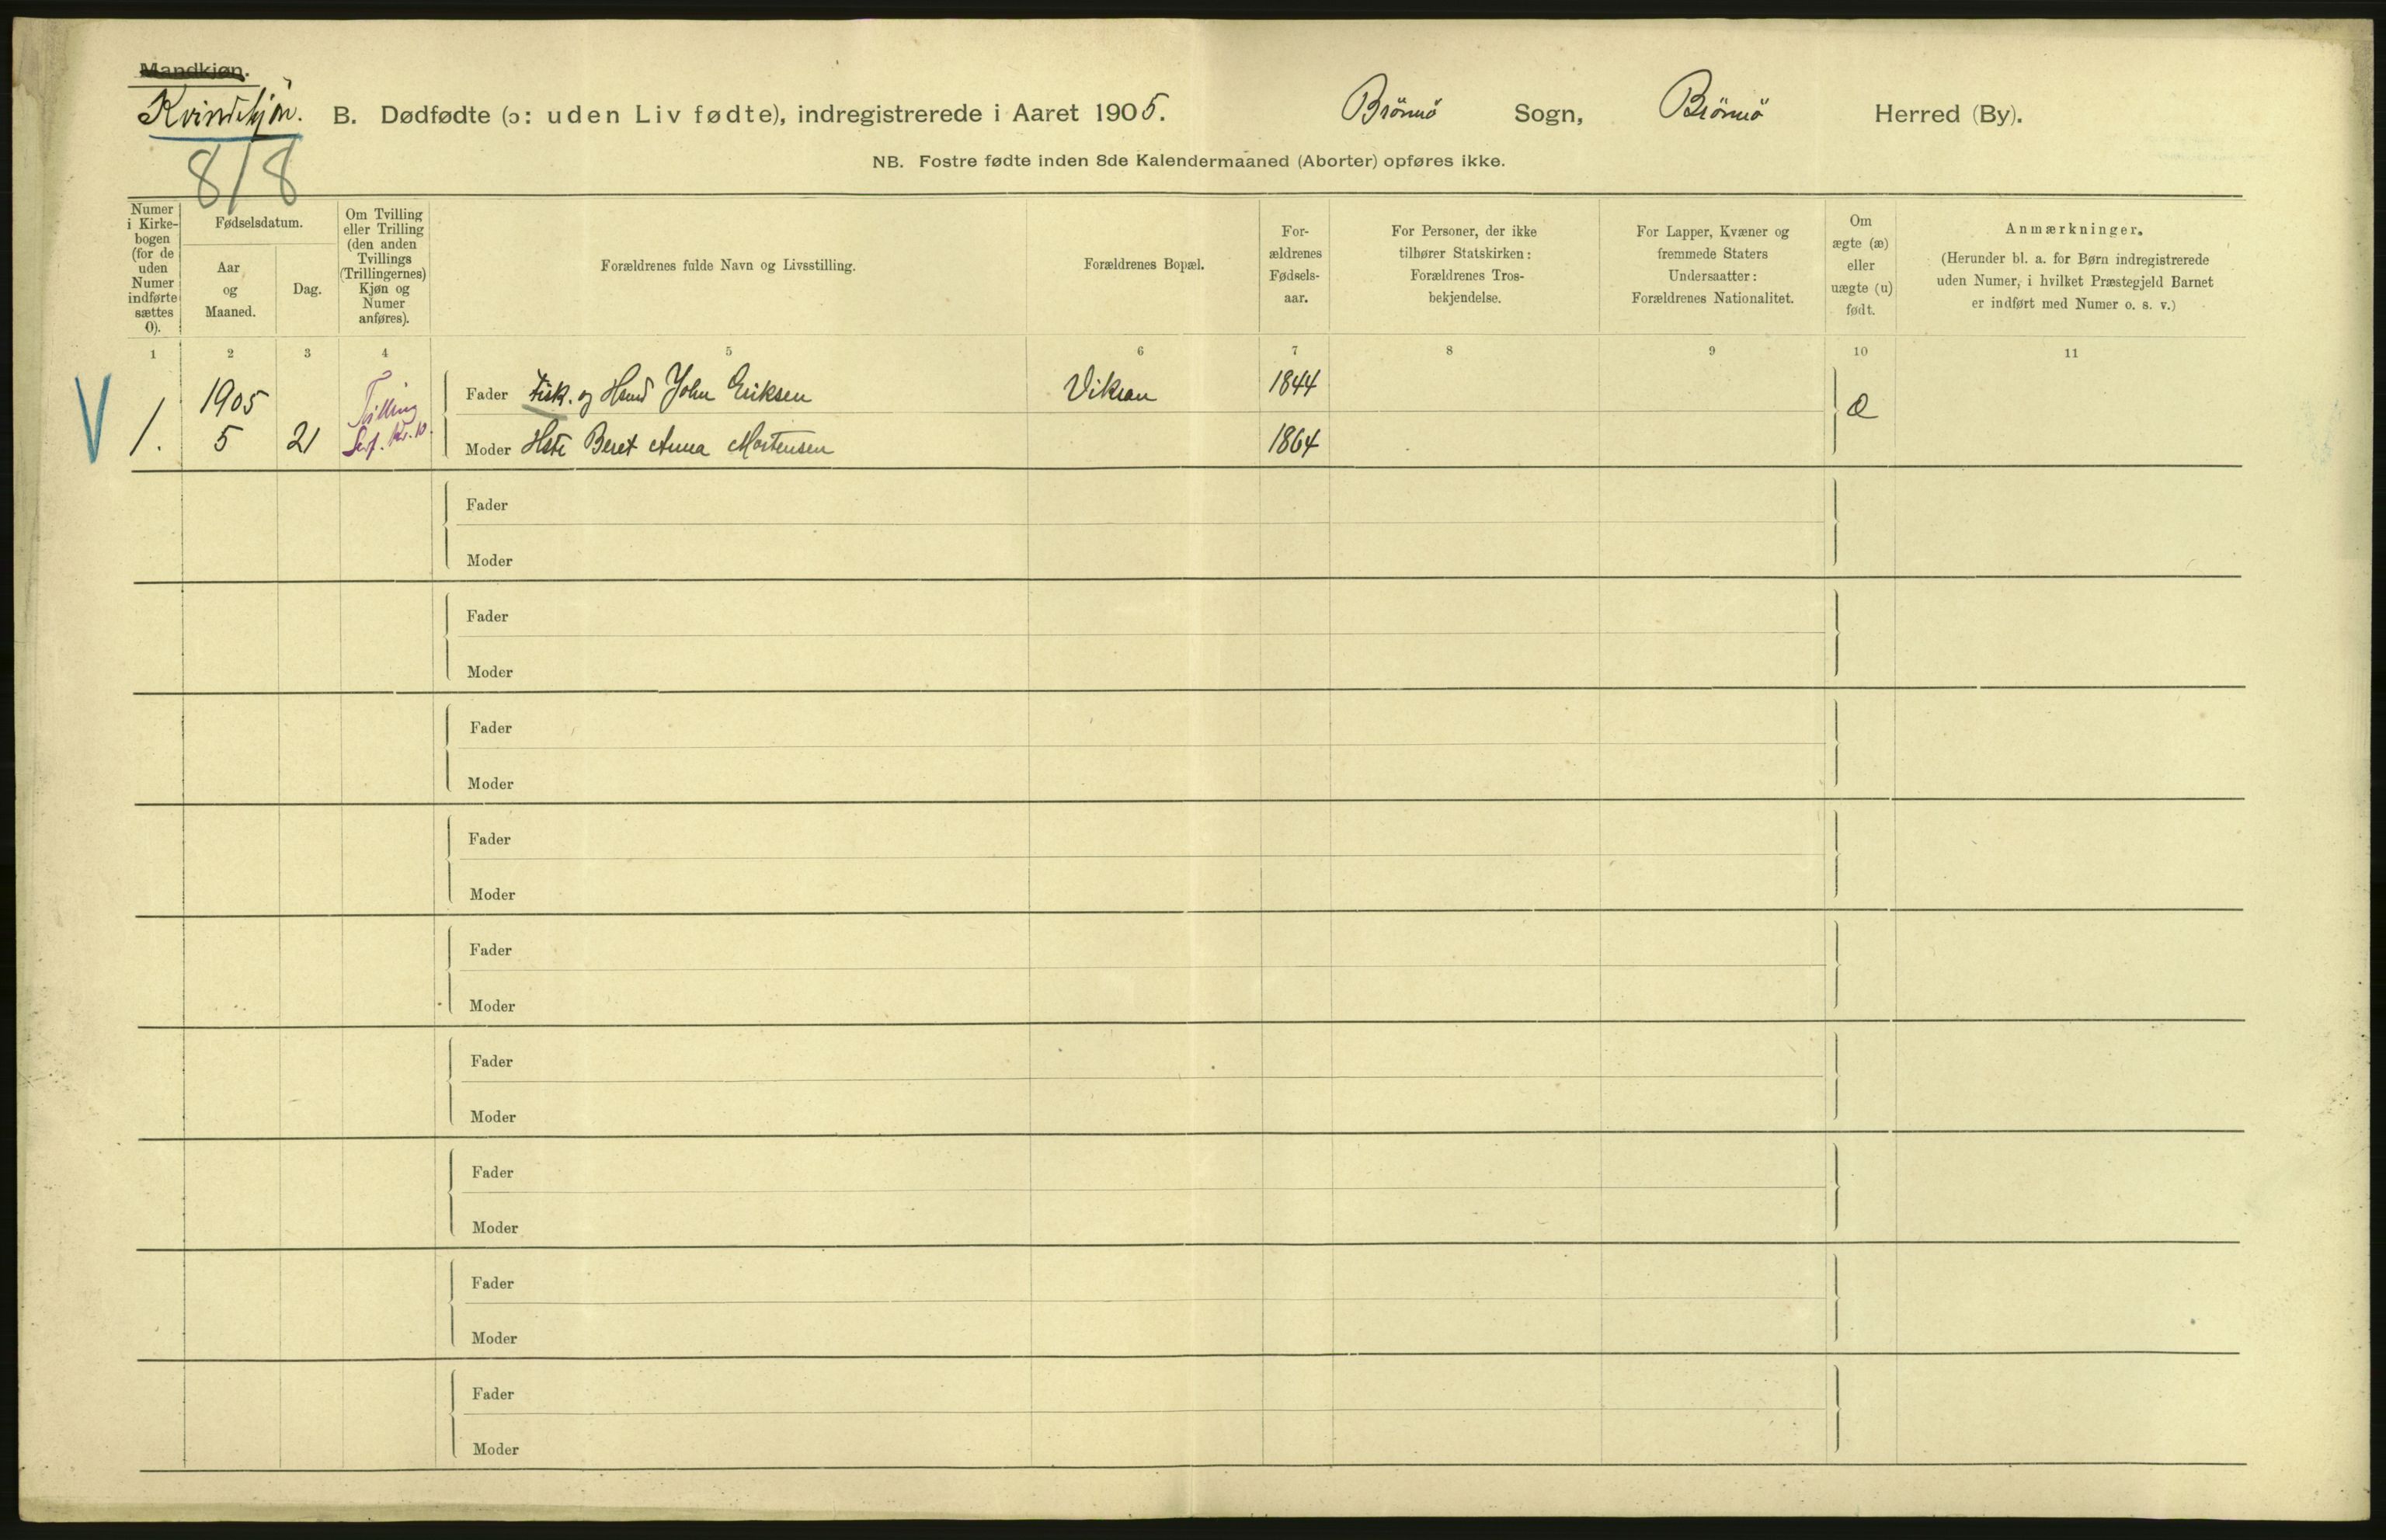 Mandkjøn.
Kvindekjøn. B. Dødfødte (ɔ: uden Liv fødte), indregistrerede i Aaret 1905. Brönnö Sogn, Brönnö Herred (By).
818
NB. Fostre fødte inden 8de Kalendermaaned (Aborter) opføres ikke.
Numer i Kirkebogen (for de uden Numer indførte sættes 0).
Fødselsdatum.
Aar og Maaned.
Dag.
Om Tvilling eller Trilling (den anden Tvillings (Trillingernes) Kjøn og Numer anføres).
Forældrenes fulde Navn og Livsstilling.
Forældrenes Bopæl.
Forældrenes Fødselsaar.
For Personer, der ikke tilhører Statskirken: Forældrenes Trosbekjendelse.
For Lapper, Kvæner og fremmede Staters Undersaatter: Forældrenes Nationalitet.
Om ægte (æ) eller uægte (u) født.
Anmærkninger.
(Herunder bl. a. for Børn indregistrerede uden Numer, i hvilket Præstegjeld Barnet er indført med Numer o. s. v.)
1 2 3 4 5 6 7 8 9 10 11
V 1. 1905 5 21 Tvilling
Fader Fisk. og Hsmd John Eriksen Vikran 1844 æ
Moder Hste Beret Anna Mortensen 1864
Fader
Moder
Fader
Moder
Fader
Moder
Fader
Moder
Fader
Moder
Fader
Moder
Fader
Moder
Fader
Moder
Fader
Moder